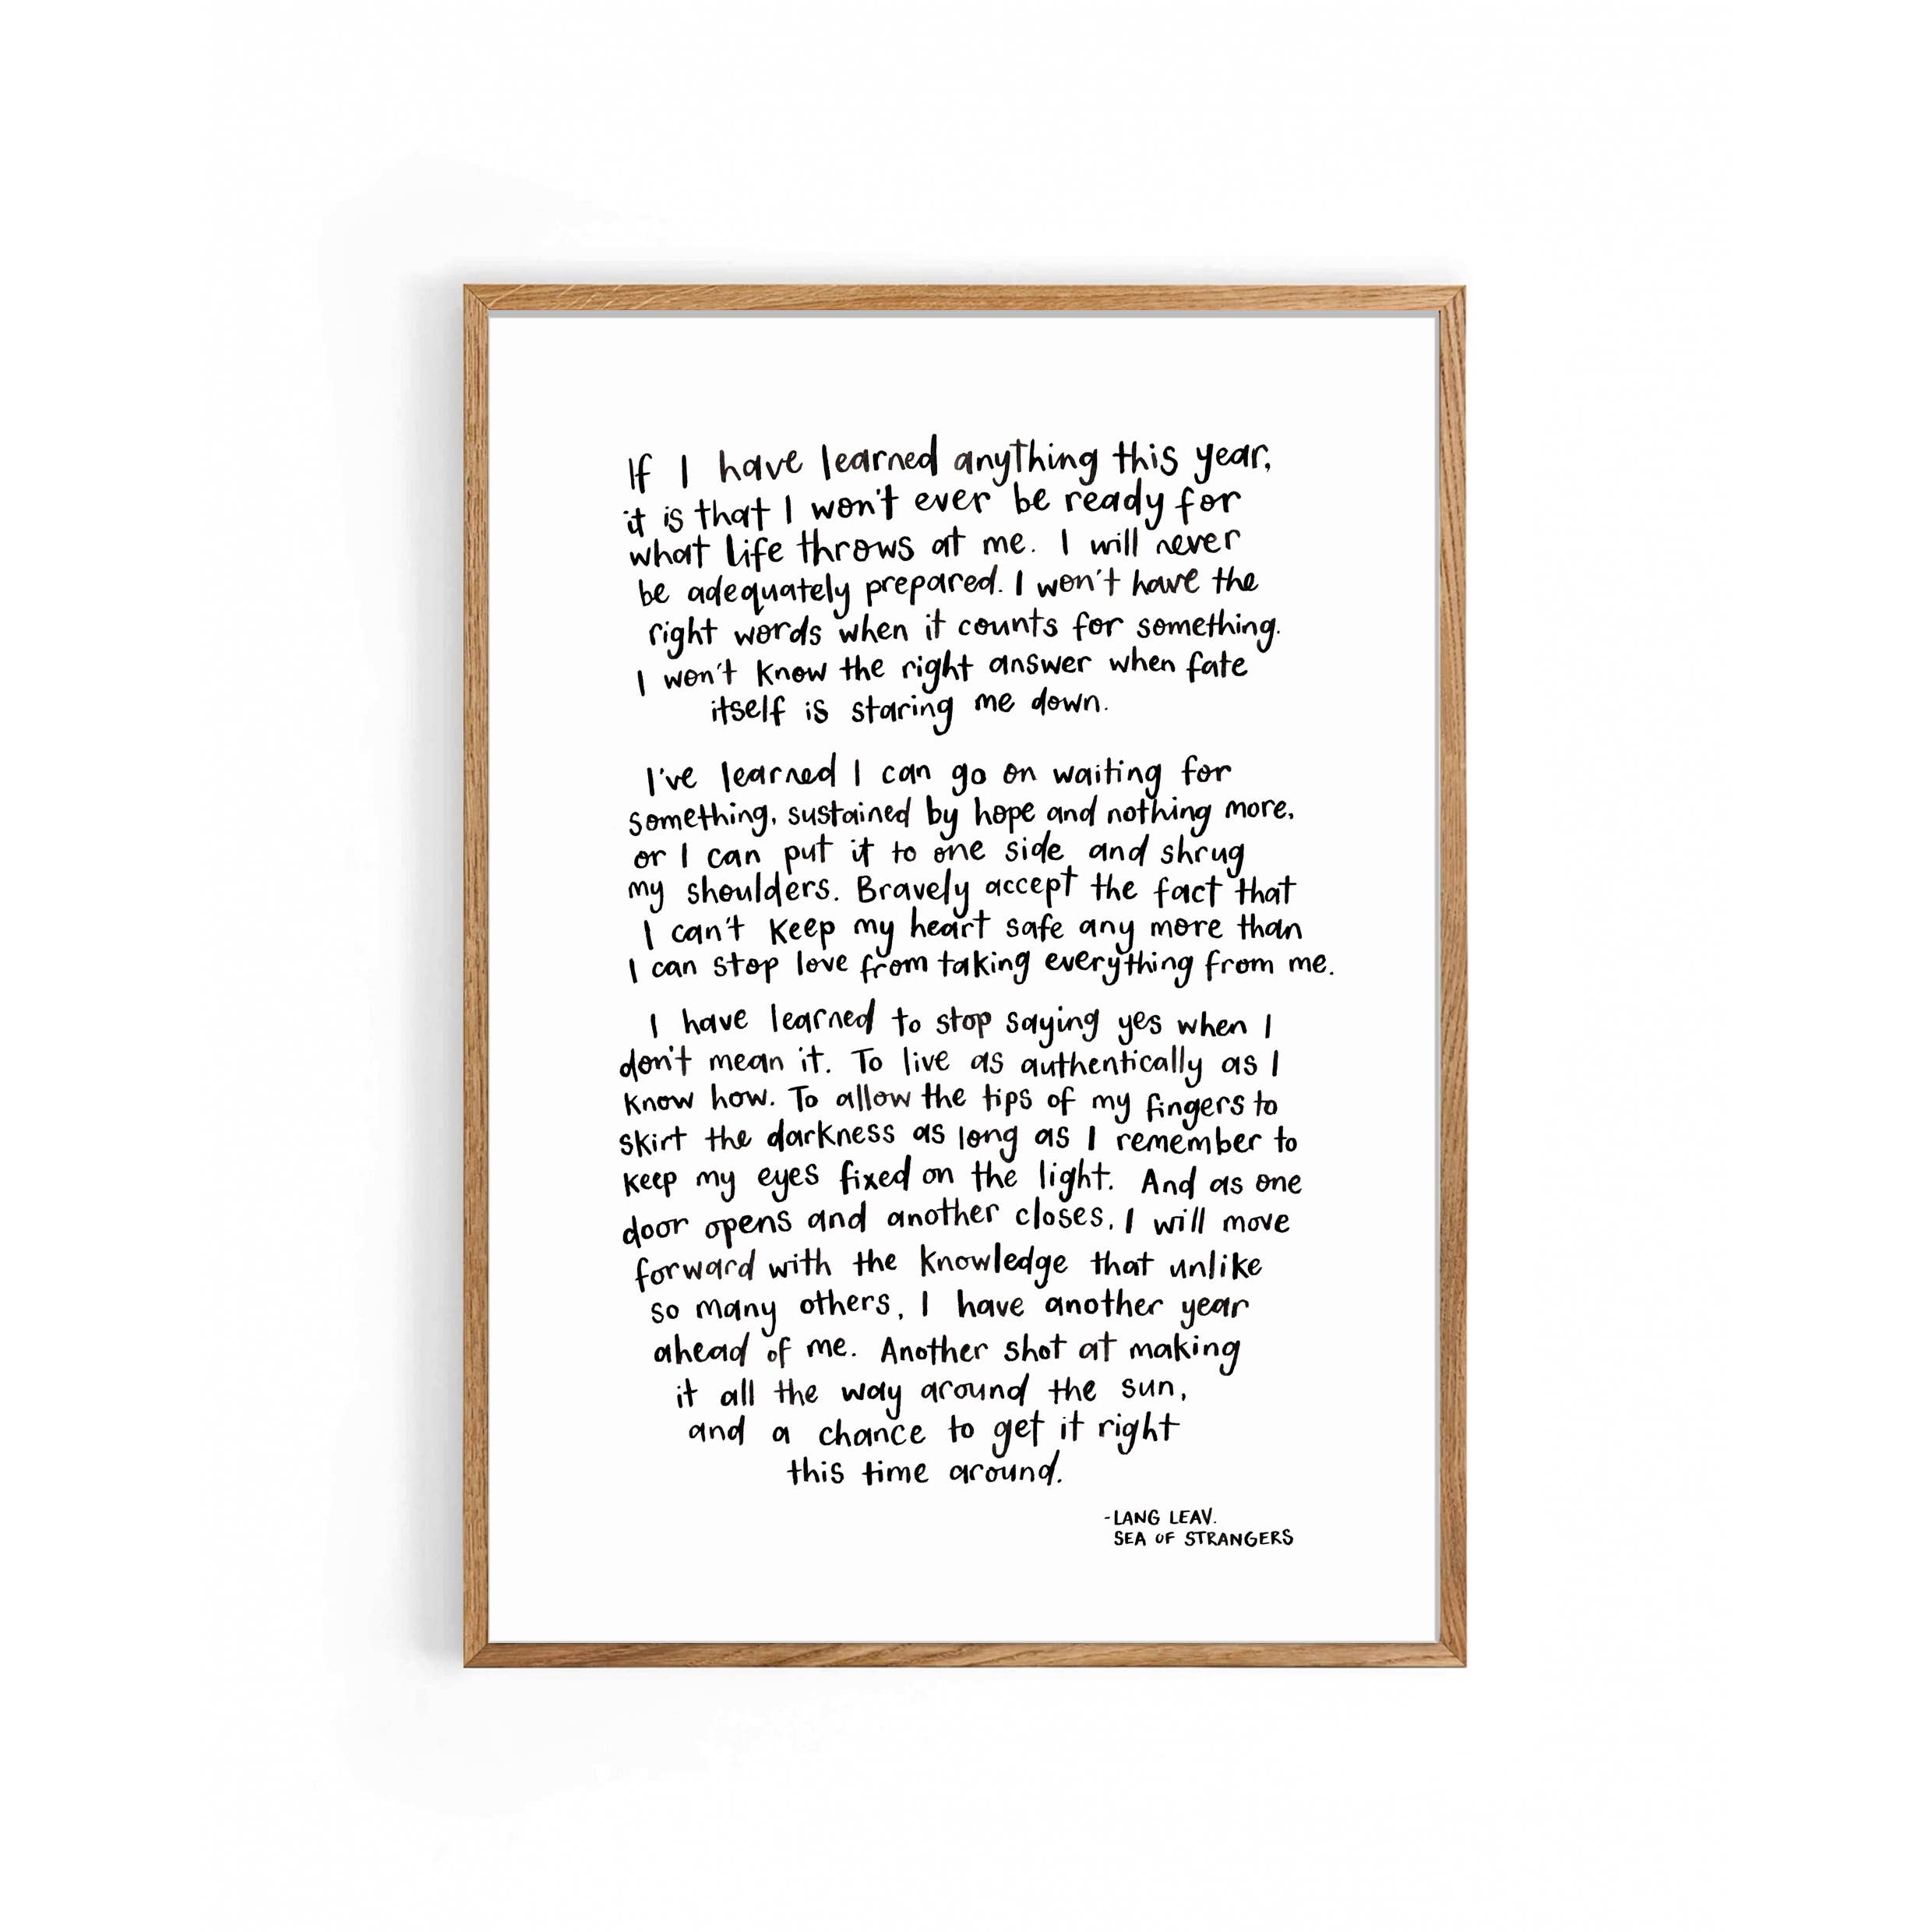 If I have learned anything this year,
it is that I won't ever be ready for
what life throws at me. I will never
be adequately prepared. I won't have the
right words when it counts for something.
I won't know the right answer when fate
itself is staring me down.
I've learned I can go on waiting for
something, sustained by hope and nothing more,
or I can put it to one side and shrug
my shoulders. Bravely accept the fact that
I can't keep my heart safe any more than
I can stop love from taking everything from me.
I have learned to stop saying yes when I
don't mean it. To live as authentically as I
know how. To allow the tips of my fingers to
skirt the darkness as long as I remember to
keep my eyes fixed on the light. And as one
door opens and another closes, I will move
forward with the knowledge that unlike
so many others, I have another year
ahead of me. Another shot at making
it all the way around the sun,
and a chance to get it right
this time around.
-LANG LEAV.
SEA OF STRANGERS